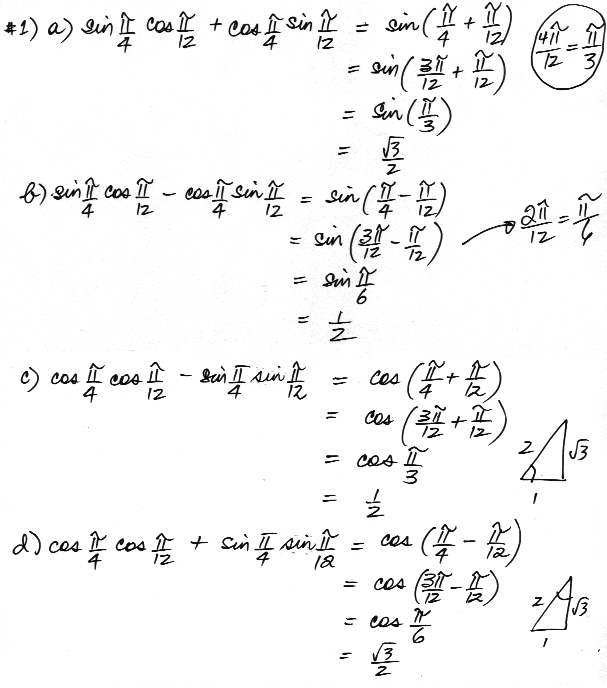 #1) a) sin π/4 cos π/12 + cos π/4 sin π/12 = sin (π/4 + π/12) 4π/12 = π/3
= sin (3π/12 + π/12)
= sin (π/3)
= √3/2
b) sin π/4 cos π/12 - cos π/4 sin π/12 = sin (π/4 - π/12)
= sin (3π/12 - π/12) → 2π/12 = π/6
= sin π/6
= 1/2
c) cos π/4 cos π/12 - sin π/4 sin π/12 = cos (π/4 + π/12)
= cos (3π/12 + π/12)
= cos π/3
= 1/2
2 √3
1
d) cos π/4 cos π/12 + sin π/4 sin π/12 = cos (π/4 - π/12)
= cos (3π/12 - π/12)
= cos π/6
= √3/2
2 √3
1